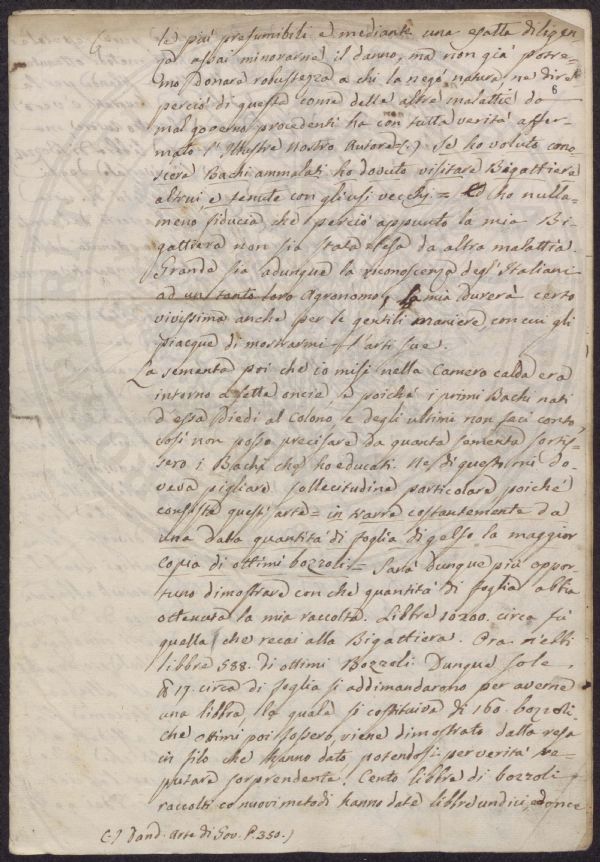 le più presumibili e mediante una esatta diligen-
za assai minorarne il danno, ma non già potre-
mo donare robustezza a chi la negò natura, ne dire
6
perciò di questa come delle altre malattie da
mal governo procedenti ha con tutta verità affer-
mato l'Illustre Nostro Autore (.) Se ho voluto cono-
scere Bachi ammalati ho dovuto visitare Bigattiere
altrui, e tenute con gli usi vecchj = ed ho nulla-
meno fiducia, che perciò appunto la mia Bi-
gattiera non sia stata lesa da altra malattia.
Grande sia adunque la riconoscenza degl'Italiani
ad un tanto loro Agronomo, la mia durerà certo
vivissima anche per le gentili maniere, con cui gli
piacque di mostrarmi l'arti sue.
La sementa poi che io misi nella Camera calda era
intorno a sette oncie, e poichè i primi Bachi nati
d'essa diedi al Colono, e degli ultimi non feci conto,
così non posso precisare da quanta sementa sortis-
sero i Bachi che ho educati. Nè di questo mi do-
veva pigliare sollecitudine particolare poichè
consiste quest'arte = in trarre costantemente da
una data quantità di foglia di gelso la maggior
copia di ottimi bozzoli = Sarà dunque più oppor-
tuno dimostrare con che quantità di foglia abbia
ottenuta la mia raccolta. Libbre 10200. circa fù
quella, che recai alla Bigattiera. Ora n'ebbi
libbre 588. di ottimi Bozzoli. Dunque sole
17. circa di foglia si addimandarono per averne
una libbra, la quale si costituiva di 160. bozzoli.
che ottimi poi fossero, viene dimostrato dalla resa
in filo che hanno dato potendosi per verità re-
putare sorprendente. Cento libbre di bozzoli
raccolti co' nuovi metodi hanno date libbre undici, e once
(.) Dand. Arte di Gov. P. 350.)